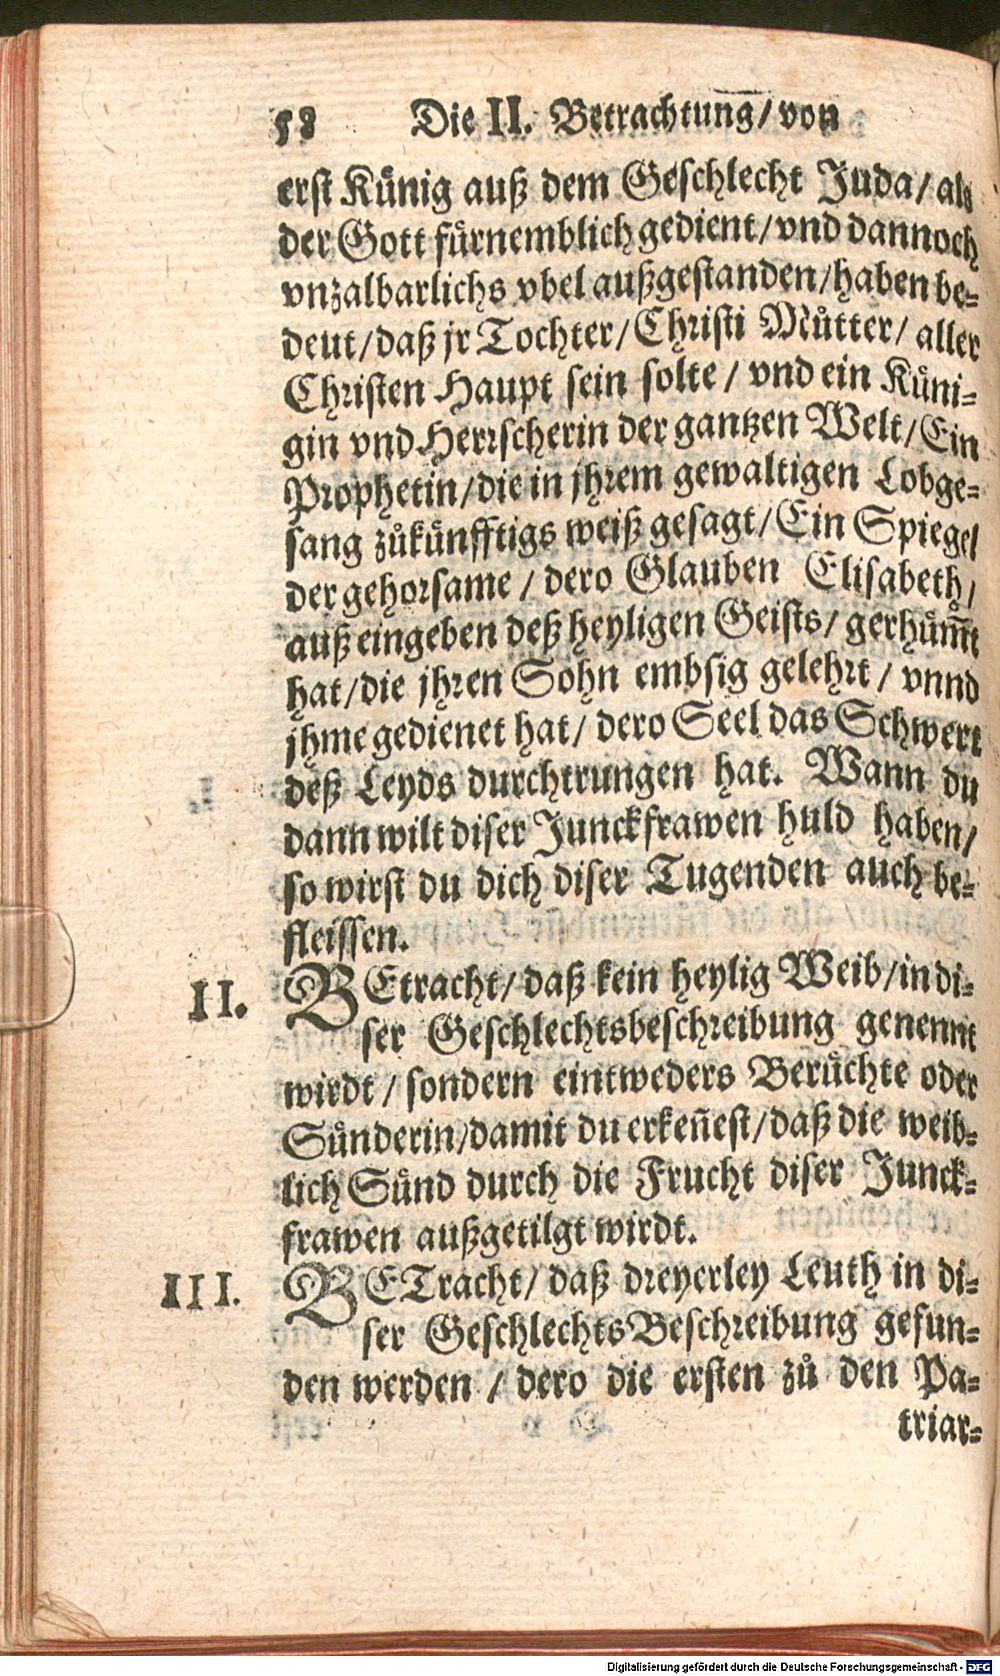 58 Die II. Betrachtung/ von
erst Künig auß dem Geschlecht Juda/ als
der Gott fürnemblich gedient/ vnd dannoch
vnzalbarlichs vbel außgestanden/ haben be-
deut/ daß jr Tochter/ Christi Můtter/ aller
Christen Haupt sein solte/ vnd ein Küni-
gin vnd Herrscherin der gantzen Welt/ Ein
Prophetin/ die in jhrem gewaltigen Lobge-
sang zůkünfftigs weiß gesagt/ Ein Spiegel
der gehorsame/ dero Glauben Elisabeth/
auß eingeben deß heyligen Geists/ gerhüm̃t
hat/ die jhren Sohn embsig gelehrt/ vnnd
jhme gedienet hat/ dero Seel das Schwert
deß Leyds durchtrungen hat. Wann du
dann wilt diser Junckfrawen huld haben/
so wirst du dich diser Tugenden auch be-
fleissen.
II. BEtracht/ daß kein heylig Weib/ in di-
ser Geschlechtsbeschreibung genennt
wirdt/ sondern eintweders Berüchte oder
Sünderin/ damit du erkeñest/ daß die weib-
lich Sünd durch die Frucht diser Junck-
frawen außgetilgt wirdt.
III. BETracht/ daß dreyerley Leuth in di-
ser GeschlechtsBeschreibung gefun-
den werden/ dero die ersten zů den Pa-
triar-
Digitalisierung gefördert durch die Deutsche Forschungsgemeinschaft - DFG